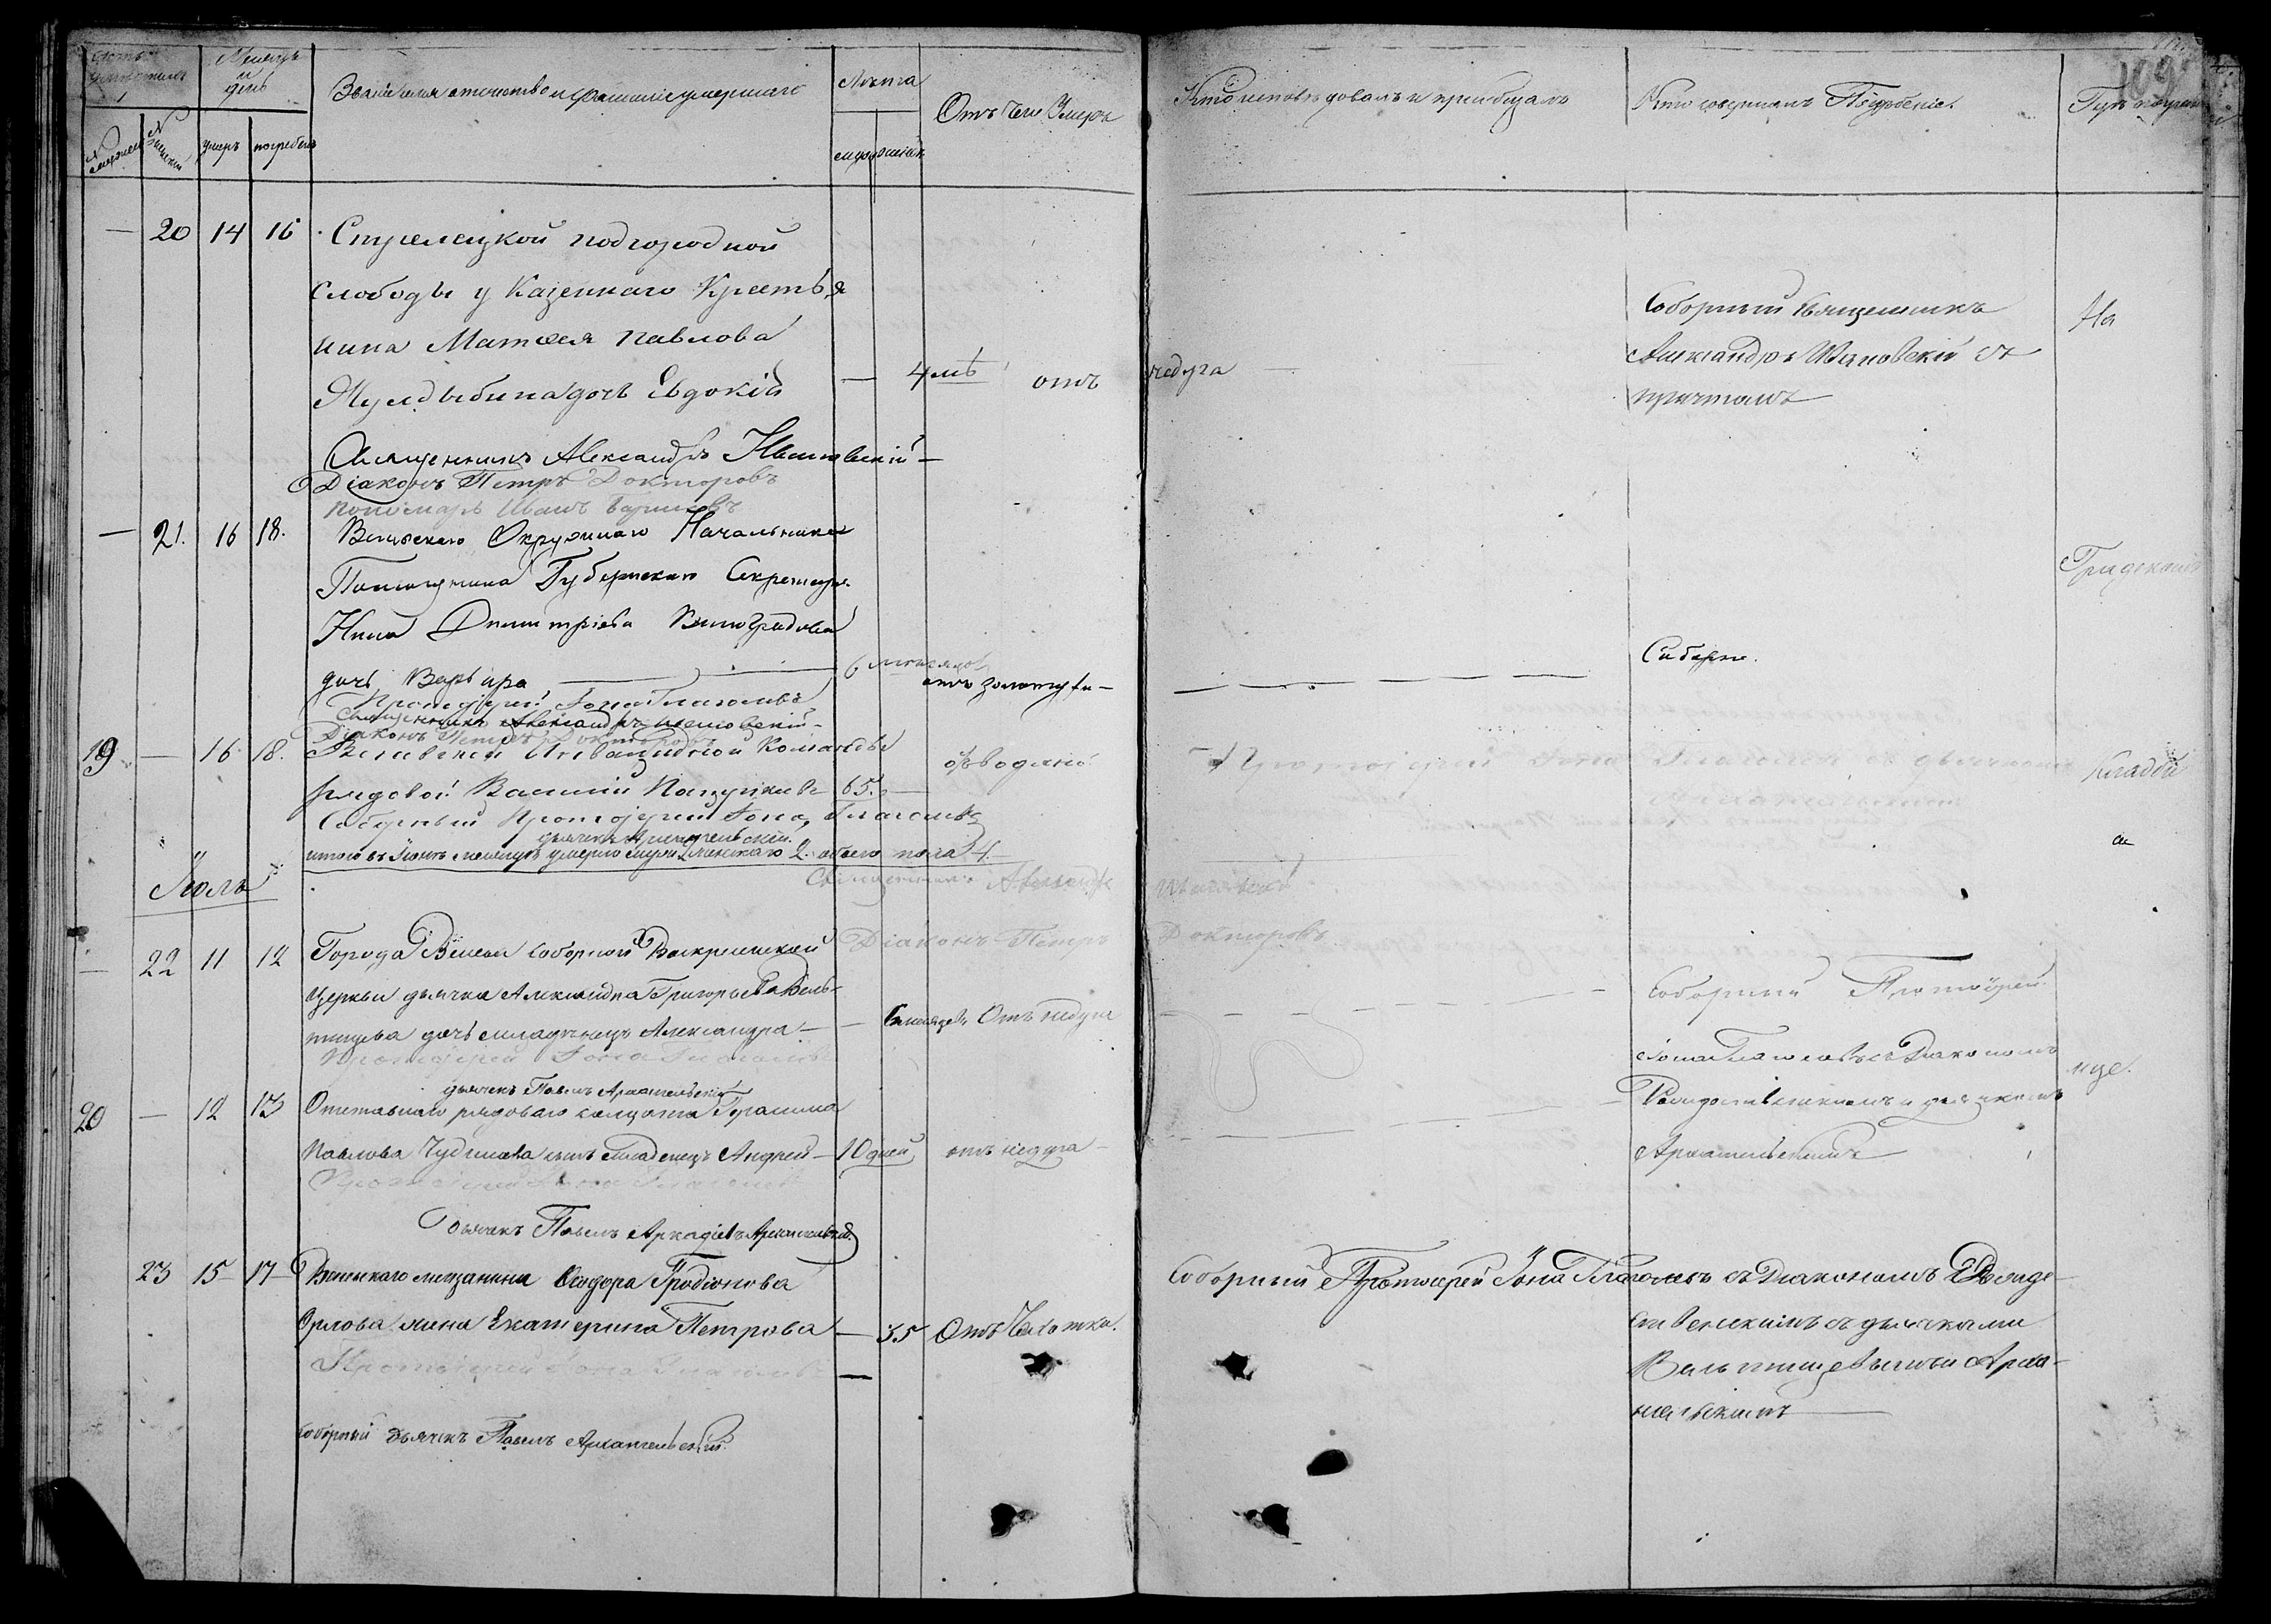 Счетъ умершихъ
Мѣсяцъ и день
Званіе имя отчество и фамилія умершаго
Лѣта
Отъ чего умеръ
Кто исповѣдовалъ и пріобщалъ
Кто совершалъ Погребеніе
Гдѣ погребены
109
умеръ
погребенъ
20 14 16 Стрелецкой подгородной
слободы у Казеннаго Крестья
нина Матѳея Павлова
дочь Евдокія — 4 лѣ отъ недуга
Соборный Священникъ
Александръ Ивановскій съ
причтомъ
На
Священникъ Александръ Ивановскій
Діаконъ Петръ Докторовъ
Пономарь Иванъ
— 21. 16 18. Веневскаго Окружнаго Начальника
Помощника Губернскаго Секретаря
Димитріева Виноградова
дочь Варвара 6 месяцов отъ золотухи —
Соборне.
Градскомъ
Протоіерей Іона Глаголевъ
Священникъ Александръ Ивановскій
Діаконъ Петръ Докторовъ
19 — 16 18. Веневской Инвалидной Команды
рядовой Василій 65. — отъ водяной
Протоіерей Іона Глаголевъ съ дьячкомъ
Кладби
Соборный Протоіерей Іона Глаголевъ
дьячекъ Архангельскій
итого въ Іюнѣ месяцѣ умерло муж. 2 женскаго 2. обоего пола 4.
Священникъ Александръ Ивановскій
Іюль
Діаконъ Петръ Докторовъ
— 22 11 12 Города Венева Соборной Воскресенской
церкви дьячка Александра Григорьева Вель-
тищева дочь младенецъ Александра — — 6 месяцевъ Отъ недуга
Соборный Протоіерей
Іона Глаголевъ съ Діакономъ
Рождественскимъ и дьячкомъ
Архангельскимъ
ще.
Протоіерей Іона Глаголевъ
дьячекъ Павелъ Архангельскій
20 — 12 13 Отставнаго рядоваго солдата Герасима
Павлова сынъ младенецъ Андрей — 10 дней отъ недуга —
Протоіерей Іона Глаголевъ
Дьячекъ Павелъ Аркадіевъ Архангельскій
23 15 17 Веневскаго мещанина Ѳедора Родіонова
Орлова жена Екатерина Петрова — 35 Отъ Чахотки.
Соборный Протоіерей Іона Глаголевъ съ Діакономъ Рожде-
ственскимъ съ дьячками
Вельтищевымъ и Арха-
нгельскимъ
Протоіерей Іона Глаголевъ
Соборный дьячекъ Павелъ Архангельскій.